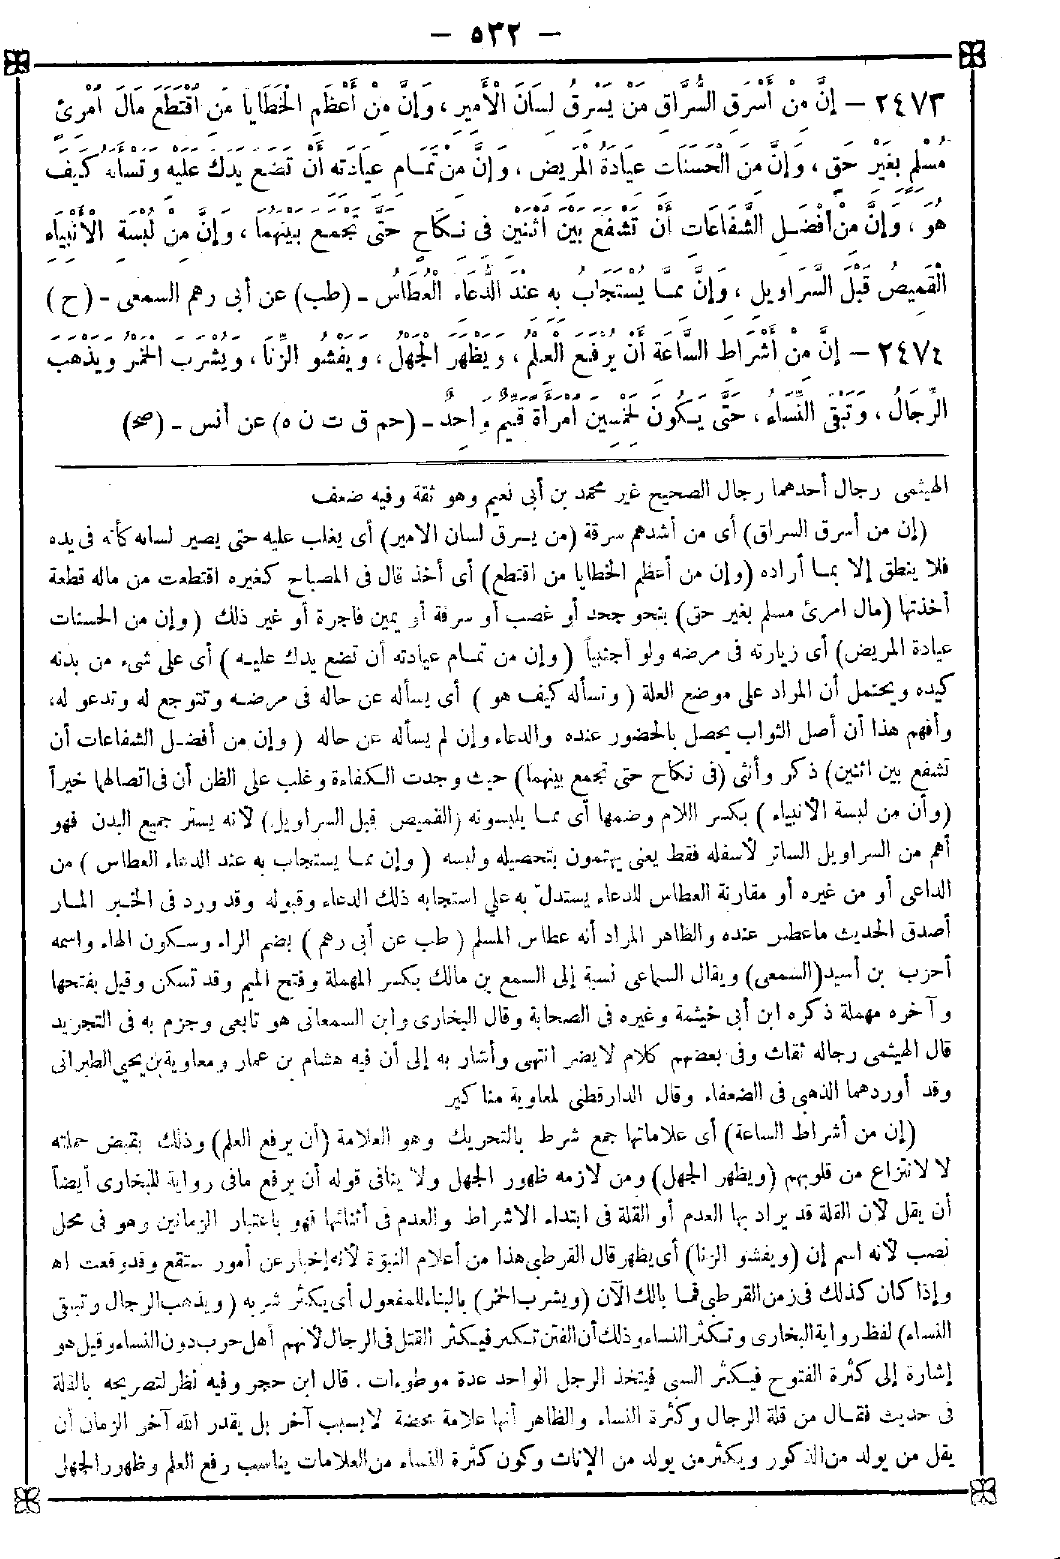 — ٥٣٢ —
٢٤٧٣ — إِنَّ مِنْ أَسْرَقِ السُّرَّاقِ مَنْ يَسْرِقُ لِسَانَ الْأَمِيرِ ، وَإِنَّ مِنْ أَعْظَمِ الْخَطَايَا مَنِ اقْتَطَعَ مَالَ امْرِئٍ
مُسْلِمٍ بِغَيْرِ حَقٍّ ، وَإِنَّ مِنَ الْحَسَنَاتِ عِيَادَةُ الْمَرِيضِ ، وَإِنَّ مِنْ تَمَامِ عِيَادَتِهِ أَنْ تَضَعَ يَدَكَ عَلَيْهِ وَتَسْأَلَهُ كَيْفَ
هُوَ ، وَإِنَّ مِنْ أَفْضَلِ الشَّفَاعَاتِ أَنْ تَشْفَعَ بَيْنَ اثْنَيْنِ فِي نِكَاحٍ حَتَّى تَجْمَعَ بَيْنَهُمَا ، وَإِنَّ مِنْ لُبْسَةِ الْأَنْبِيَاءِ
الْقَمِيصُ قَبْلَ السَّرَاوِيلِ ، وَإِنَّ مِمَّا يُسْتَجَابُ بِهِ عِنْدَ الدُّعَاءِ الْعُطَاسُ - (طب) عن أبى رهم السمعى - (ح)
٢٤٧٤ — إِنَّ مِنْ أَشْرَاطِ السَّاعَةِ أَنْ يُرْفَعَ الْعِلْمُ ، وَيَظْهَرَ الْجَهْلُ ، وَيَفْشُوَ الزِّنَا ، وَيُشْرَبَ الْخَمْرُ وَيَذْهَبَ
الرِّجَالُ ، وَتَبْقَى النِّسَاءُ ، حَتَّى يَكُونَ لِخَمْسِينَ امْرَأَةً قَيِّمٌ وَاحِدٌ - (حم ق ت ن ه) عن أنس - (صح)
الهيثمى رجال أحدهما رجال الصحيح غير محمد بن أبى نعيم وهو ثقة وفيه ضعف
(إن من أسرق السراق) أى من أشدهم سرقة (من يسرق لسان الامير) أى يغلب عليه حتى يصير لسانه كأنه فى يده
فلا ينطق إلا بما أراده (وإن من أعظم الخطايا من اقتطع) أى أخذ قال فى المصباح كغيره اقتطعت من ماله قطعة
أخذتها (مال امرئ مسلم بغير حق) بنحو جحد أو غصب أو سرقة أو يمين فاجرة أو غير ذلك (وإن من الحسنات
عيادة المريض) أى زيارته فى مرضه ولو أجنبياً (وإن من تمام عيادته أن تضع يدك عليه) أى على شىء من بدنه
كيده ويحتمل أن المراد على موضع العلة (وتسأله كيف هو) أى يسأله عن حاله فى مرضه وتتوجع له وتدعو له،
وأفهم هذا أن أصل الثواب يحصل بالحضور عنده والدعاء وإن لم يسأله عن حاله (وإن من أفضل الشفاعات أن
تشفع بين اثنين) ذكر وأنثى (فى نكاح حتى تجمع بينهما) حيث وجدت الكفاءة وغلب على الظن أن فى اتصالهما خيراً
(وأن من لبسة الأنبياء) بكسر اللام وضمها أى مما يلبسونه (القميص قبل السراويل) لأنه يستر جميع البدن فهو
أهم من السراويل الساتر لأسفله فقط يعنى يهتمون بتحصيله ولبسه (وإن مما يستجاب به عند الدعاء العطاس) من
الداعى أو من غيره أو مقارنة العطاس للدعاء يستدلّ به على استجابه ذلك الدعاء وقبوله وقد ورد فى الخبر المار
أصدق الحديث ماعطس عنده والظاهر المراد أنه عطاس المسلم (طب عن أبى رهم) بضم الراء وسكون الهاء واسمه
أحزب بن أسيد(السمعى) ويقال السماعى نسبة إلى السمع بن مالك بكسر المهملة وفتح الميم وقد تسكن وقيل بفتحها
وآخره مهملة ذكره ابن أبى خيثمة وغيره فى الصحابة وقال البخارى وابن السمعانى هو تابعى وجزم به فى التجريد
قال الهيثمى رجاله ثقات وفى بعضهم كلام لايضر انتهى وأشار به إلى أن فيه هشام بن عمار ومعاوية بن يحيى الطبرانى
وقد أوردهما الذهبى فى الضعفاء وقال الدارقطنى لمعاوية مناكير
(إن من أشراط الساعة) أى علاماتها جمع شرط بالتحريك وهو العلامة (أن يرفع العلم) وذلك بقبض حملته
لا لانتزاع من قلوبهم (ويظهر الجهل) ومن لازمه ظهور الجهل ولا ينافى قوله أن يرفع مافى رواية للبخارى أيضاً
أن يقل لأن القلة قد يراد بها العدم أو القلة فى ابتداء الاشراط والعدم فى أثنائها فهو باعتبار الزمانين وهو فى محل
نصب لأنه اسم إن (ويفشو الزنا) أى يظهر قال القرطبى هذا من أعلام النبوّة لأنه إخبار عن أمور ستقع وقد وقعت اه
وإذا كان كذلك فى زمن القرطبى فما بالك الآن (ويشرب الخمر) بالبناء للمفعول أى يكثر شربه (ويذهب الرجال وتبقى
النساء) لفظ رواية البخارى وتكثر النساء وذلك أن الفتن تكثر فيكثر القتل فى الرجال لأنهم أهل حرب دون النساء وقيل هو
إشارة إلى كثرة الفتوح فيكثر السبى فيتخذ الرجل الواحد عدة موطوءات . قال ابن حجر وفيه نظر لتصريحه بالقلة
فى حديث فقال من قلة الرجال وكثرة النساء والظاهر أنها علامة محضة لابسبب آخر بل يقدر الله آخر الزمان أن
يقل من يولد من الذكور ويكثر من يولد من الإناث وكون كثرة النساء من العلامات يناسب رفع العلم وظهور الجهل